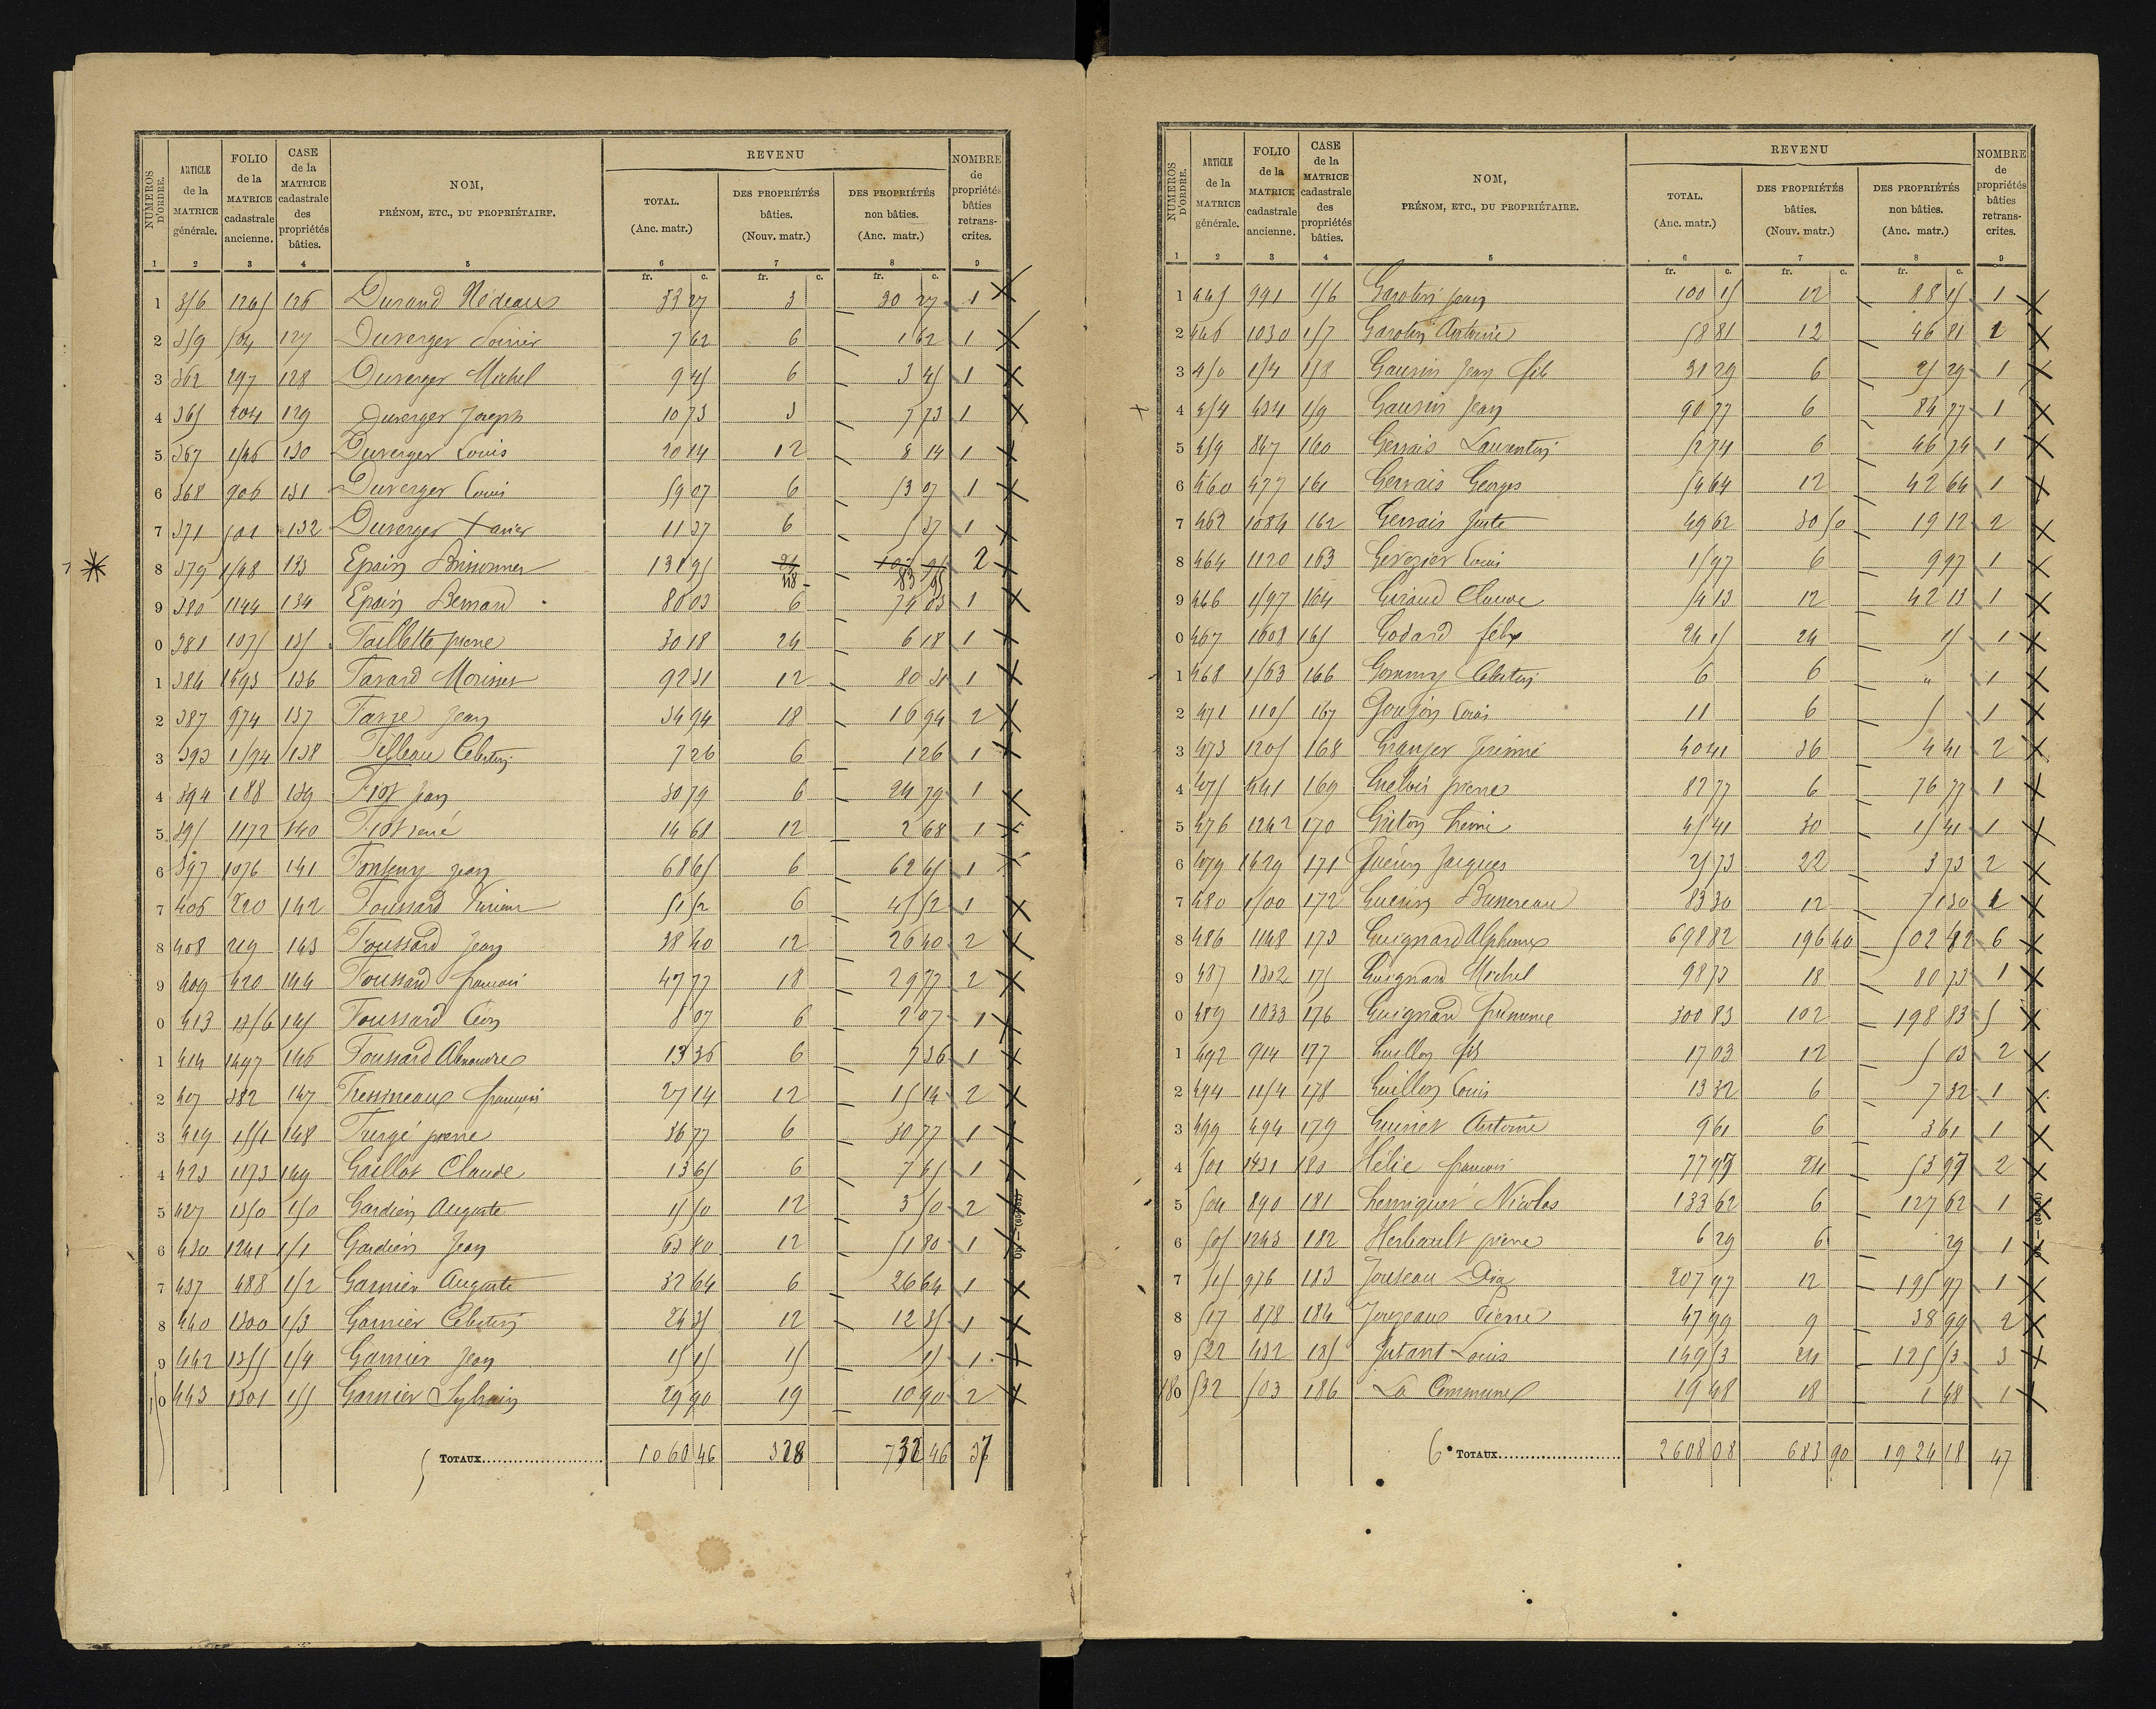 NUMEROS D'ORDRE.
ARTICLE de la MATRICE générale.
FOLIO de la MATRICE cadastrale ancienne.
CASE de la MATRICE cadastrale des propriétés bâties.
NOM,
PRÉNOM, ETC., DU PROPRIÉTAIRE.
REVENU
TOTAL. (Anc. matr.)
DES PROPRIÉTÉS bâties. (Nouv. matr.)
DES PROPRIÉTÉS non bâties. (Anc. matr.)
NOMBRE de propriétés bâties retrans-crites.
1 2 3 4 5 6 7 8 9
fr. c. fr. c. fr. c.
1 356 1265 126 Durand 33 27 3 30 27 1
2 359 504 127 Duverger 7 62 6 1 62 1
3 362 297 128 Duverger Michel 9 45 6 3 45 1
4 365 204 129 Duverger Joseph 10 73 3 7 73 1
5 367 1546 130 Duverger Louis 20 14 12 8 14 1
6 368 906 131 Duverger Louis 59 07 6 53 07 1
7 371 501 132 Duverger Xavier 11 37 6 5 37 1
8 379 1548 133 Epain Brisonner 131 95 48 83 95 2
9 380 1144 134 Epain Bernard 80 03 6 74 03 1
0 381 1075 135 Faillette pierre 30 18 24 6 18 1
1 384 1593 136 Favard 92 31 12 80 31 1
2 387 974 137 Jean 34 94 18 16 94 2
3 393 1594 138 Célestin 7 26 6 1 26 1
4 394 188 139 Fiot Jean 30 79 6 24 79 1
5 395 1172 140 Fiot rené 14 68 12 2 68 1
6 397 1076 141 Fonteny Jean 68 65 6 62 65 1
7 406 220 142 Foussard 51 52 6 45 52 1
8 408 219 143 Foussard Jean 38 40 12 26 40 2
9 409 420 144 Foussard françois 47 77 18 29 77 2
0 413 1356 145 Foussard Léon 8 07 6 2 07 1
1 414 1497 146 Foussard Alexandre 13 36 6 7 36 1
2 407 382 147 Fressineaux françois 27 14 12 15 14 2
3 419 1551 148 Furgé pierre 36 77 6 30 77 1
4 423 1173 149 Gaillot Claude 13 65 6 7 65 1
5 427 1350 150 Gardien Auguste 15 50 12 3 50 2
6 430 1241 151 Gardien Jean 63 80 12 51 80 1
7 437 488 152 Garnier Auguste 32 64 6 26 64 1
8 440 1300 153 Garnier Célestin 24 35 12 12 35 1
9 442 1355 154 Garnier Jean 15 15 15 15 1
0 443 1301 155 Garnier Sylvain 29 90 19 10 90 2
5 TOTAUX 1060 46 328 732 46 37
NUMEROS D'ORDRE.
ARTICLE de la MATRICE générale.
FOLIO de la MATRICE cadastrale ancienne.
CASE de la MATRICE cadastrale des propriétés bâties.
NOM,
PRÉNOM, ETC., DU PROPRIÉTAIRE.
REVENU
TOTAL. (Anc. matr.)
DES PROPRIÉTÉS bâties. (Nouv. matr.)
DES PROPRIÉTÉS non bâties. (Anc. matr.)
NOMBRE de propriétés bâties retrans-crites.
1 2 3 4 5 6 7 8 9
fr. c. fr. c. fr. c.
1 445 991 156 Garotin Jean 100 15 12 88 15 1
2 446 1030 157 Garotin Antoine 58 81 12 46 81 1
3 450 154 158 Gaurin Jean fils 31 29 6 25 29 1
4 454 434 159 Gaurin Jean 90 77 6 84 77 1
5 459 847 160 Gervais Laurentin 52 74 6 46 74 1
6 460 477 161 Gervais Georges 54 64 12 42 64 1
7 462 1084 162 Gervais Juste 49 62 30 50 19 12 2
8 464 1120 163 Louis 15 97 6 9 97 1
9 466 1597 164 Giraud Claude 54 13 12 42 13 1
0 467 1608 165 Godard félix 24 15 24 15 1
1 468 1563 166 Célestin 6 6 " 1
2 471 1105 167 Goujon Louis 11 6 5 1
3 473 1205 168 Granger Jérémie 40 41 36 4 41 2
4 475 541 169 pierre 82 77 6 76 77 1
5 476 1242 170 Griton 45 41 30 15 41 1
6 479 1629 171 Guérin Jacques 25 73 22 3 73 2
7 480 1500 172 Guérin 83 30 12 71 30 1
8 486 1148 173 Guignard Alphonse 698 82 196 40 502 42 6
9 487 1302 175 Guignard Michel 98 73 18 80 73 1
0 489 1033 176 Guignard 300 83 102 198 83 5
1 492 914 177 Guillon fils 17 03 12 5 03 2
2 494 1154 178 Guillon Louis 13 32 6 7 32 1
3 499 494 179 Guiniet Antoine 9 61 6 3 61 1
4 501 1431 180 Hélie françois 77 97 24 53 97 2
5 504 890 181 Nicolas 133 62 6 127 62 1
6 505 1243 182 Herbault pierre 6 29 6 29 1
7 515 976 183 Jouteau 207 97 12 195 97 1
8 517 878 184 Jouzeaux Pierre 47 99 9 38 99 2
9 522 432 185 Jutant Louis 149 53 24 125 53 3
180 532 503 186 La Commune 19 48 18 1 48 1
6 TOTAUX 2608 08 683 90 1924 18 47